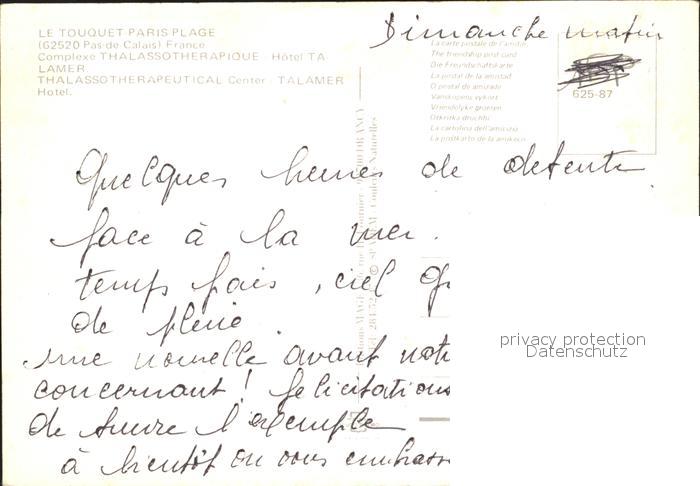 LE TOUQUET-PARIS PLAGE
(62520 Pas-de-Calais) France
Complexe THALASSOTHERAPIQUE - Hôtel TA-
LAMER
THALASSOTHERAPEUTICAL Center - TALAMER
Hotel.
Dimanche matin
La carte postale de l'amitié
The friendship post card
Die Freundschaftskarte
La postal de la amistad
O postal de amizade
Vriendelyke groeten
Otkritka druchbi
La cartolina dell'amicizia
625-87
Quelques heures de détente
face à la mer.
temps frais, ciel
de pluie.
une nouvelle avant
concernant ! félicitations
de suivre l'exemple
à bientôt on vous
privacy protection
Datenschutz